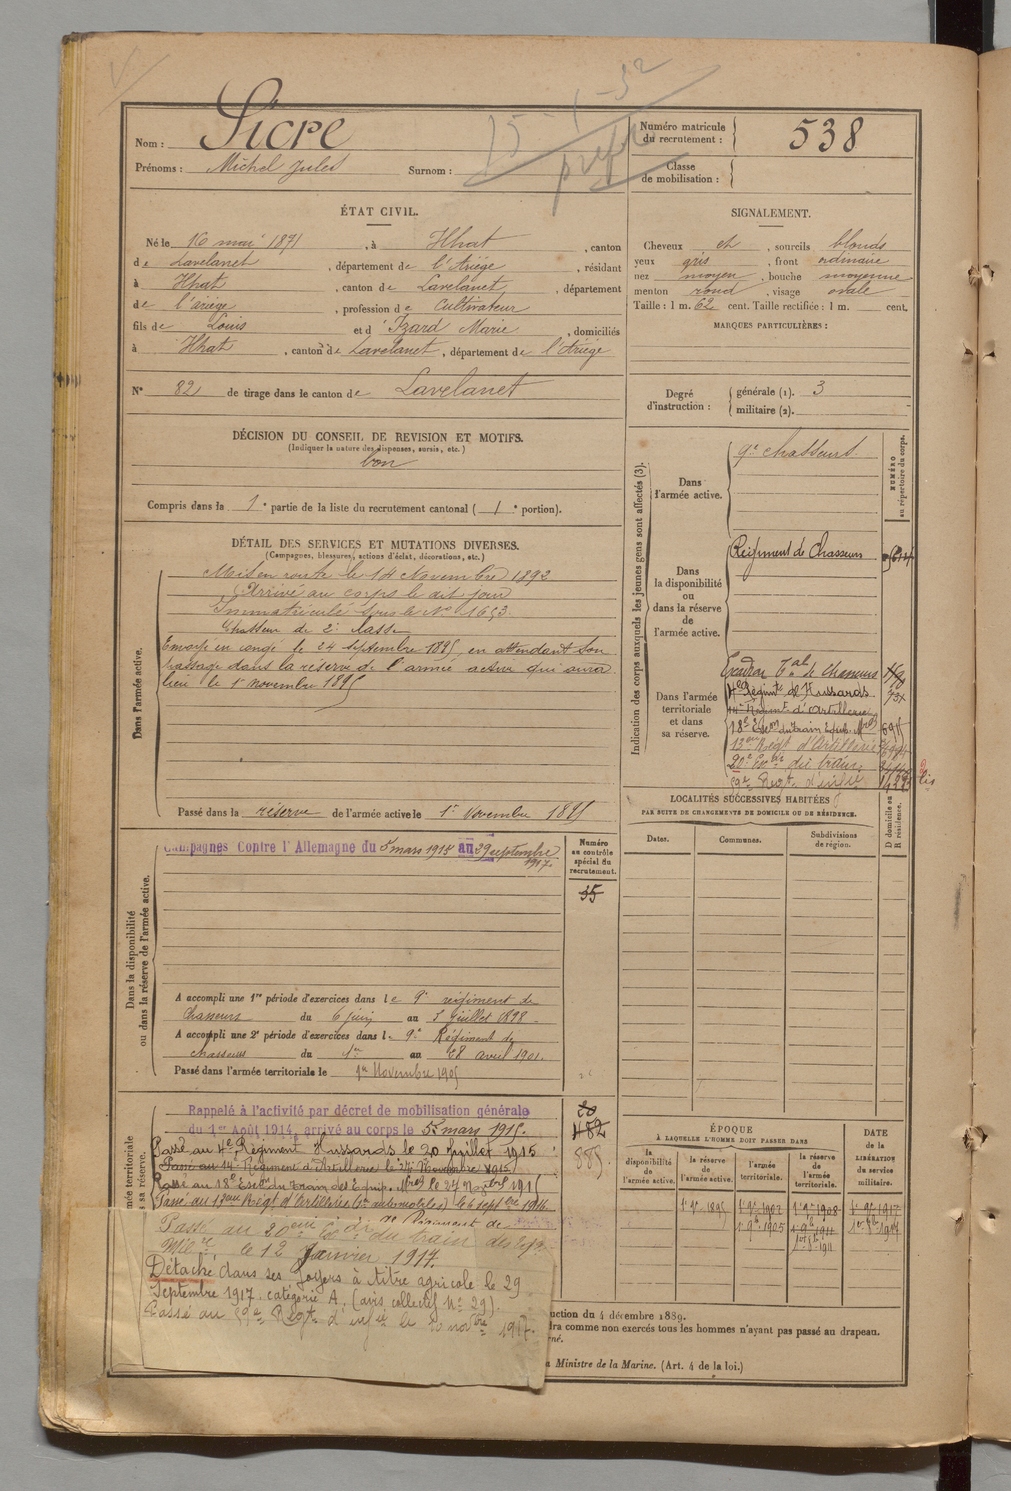 Nom : Sicre
Prénoms : Michel Jules Surnom :
15-1-32
Numéro matricule du recrutement : 538
Classe de mobilisation :
ÉTAT CIVIL.
Né le 16 mai 1871, à Ilhat, canton
de Lavelanet, département de l'Ariège, résidant
à Ilhat, canton de Lavelanet, département
de l'ariège, profession de Cultivateur
fils de Louis et d' Izard Marie, domiciliés
à Ilhat, canton de Lavelanet, département de l'Ariège
N° 82 de tirage dans le canton de Lavelanet
SIGNALEMENT.
Cheveux et, sourcils blonds
yeux gris, front ordinaire
nez moyen, bouche moyenne
menton rond, visage ovale
Taille : 1 m. 62 cent. Taille rectifiée : 1 m. cent.
MARQUES PARTICULIÈRES :
Degré d'instruction : générale (1). 3
militaire (2).
DÉCISION DU CONSEIL DE REVISION ET MOTIFS.
(Indiquer la nature des dispenses, sursis, etc.)
bon
Compris dans la 1e partie de la liste du recrutement cantonal ( 1e portion).
DÉTAIL DES SERVICES ET MUTATIONS DIVERSES.
(Campagnes, blessures, actions d'éclat, décorations, etc.)
Dans l'armée active.
Mis en route le 14 Novembre 1892
Arrivé au corps le dit jour
Immatriculé sous le No 1653.
Chasseur de 2e classe
Envoyé en congé le 24 Septembre 1895, en attendant son
passage dans la réserve de l'armée active qui aura
lieu le 1er novembre 1895
Passé dans la réserve de l'armée active le 1er Novembre 1895
Indication des corps auxquels les jeunes gens sont affectés (3).
NUMÉRO au répertoire du corps.
Dans l'armée active.
9e chasseurs.
Dans la disponibilité ou dans la réserve de l'armée active.
Régiment de Chasseurs
Dans l'armée territoriale et dans sa réserve.
Escadron Tal de chasseurs
4e Régimt de Hussards
14e Régimt d'Artillerie
18e Escon du train Equip. Mres
13ème Régt d'Artillerie
20e Eon du train
59e Regt d'infie
LOCALITÉS SUCCESSIVES HABITÉES
PAR SUITE DE CHANGEMENTS DE DOMICILE OU DE RÉSIDENCE.
Dates. Communes. Subdivisions de région. D domicile ou R résidence.
Dans la disponibilité ou dans la réserve de l'armée active.
Campagnes Contre l'Allemagne du 5 mars 1915 au 29 septembre
1917.
Numéro au contrôle spécial du recrutement.
35
A accompli une 1re période d'exercices dans le 9e régiment de
Chasseurs du 6 juin au 3 Juillet 1898
A accompli une 2e période d'exercices dans le 9e Régiment de
chasseurs du 1er au 28 avril 1901.
Passé dans l'armée territoriale le 1er Novembre 1905
Rappelé à l'activité par décret de mobilisation générale
du 1er Août 1914, arrivé au corps le 5 mars 1915.
482
885
Passé au 4e Régiment Hussards le 20 Juillet 1915
Passé au 14e Régiment d'Artillerie le 24 Novembre 1915
Passé au 18e Escon du Train des Equip. Mres le 27 Novbre 1915
Passé au 13ème Régt d'Artillerie (Son automobiles) le 6 septbre 1916.
Passé au 20ème Eon du train des eqp.
Mlre, le 12 Janvier 1917.
Détaché dans ses foyers à titre agricole le 29
Septembre 1917, catégorie A, (avis collectif No 29).
Passé au 59e Régt d'infie le novbre 1917.
ÉPOQUE
À LAQUELLE L'HOMME DOIT PASSER DANS
la disponibilité de l'armée active.
la réserve de l'armée active.
l'armée territoriale.
la réserve de l'armée territoriale.
DATE de la LIBÉRATION du service militaire.
uction du 4 décembre 1889.
dra comme non exercés tous les hommes n'ayant pas passé au drapeau.
Ministre de la Marine. (Art. 4 de la loi.)